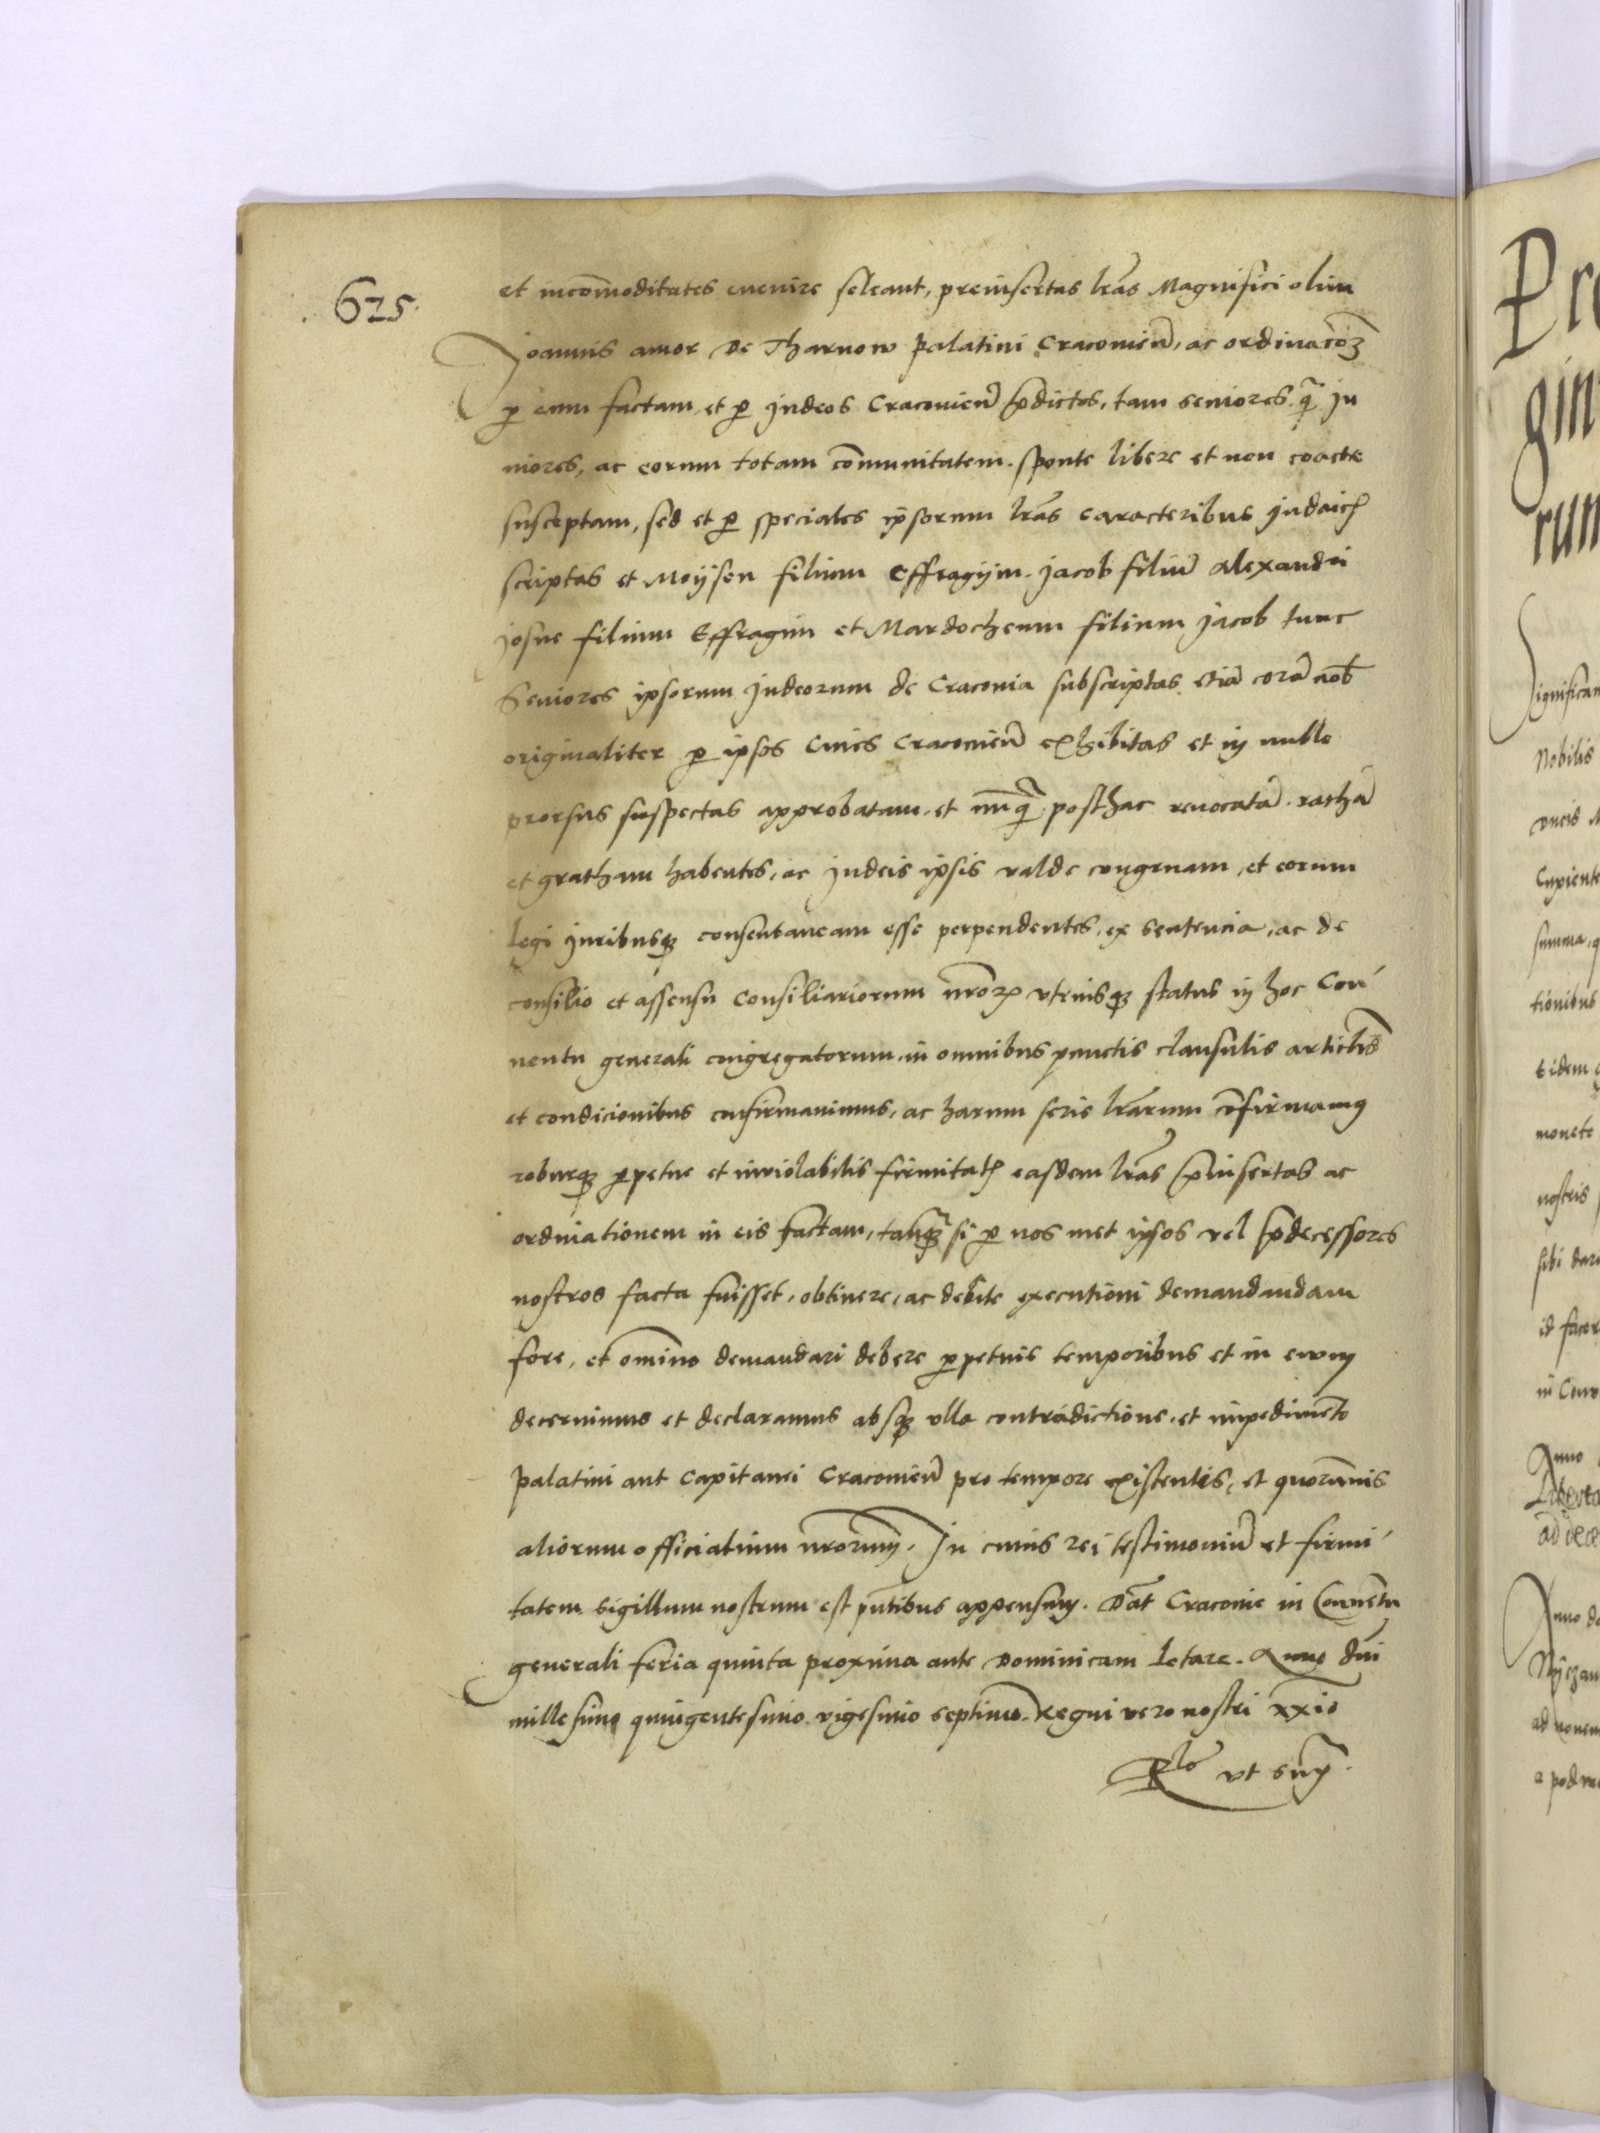 625
et incomoditates euenire soleant, preinsertas lras Magnifici olim
Joannis amor de Tharnow palatini Cracovien, ac ordinacoz
p eum factam, et p Judeos Cracovien pdictos, tam seniores q̃ Ju
niores, ac eorum totam comunitatem sponte libere et non coacte
susceptam, sed et p speciales ipsorum lras caracteribus Judaic
scriptas et Moijsen filium Effragijm. Jacob filiu Alexandri
Josue filium Effragim et Mardocheum filium Jacob tunc
Seniores ipsorum Judeorum de Cracovia subscriptas etia cora nob
originaliter p ipsos Cives Cracovien exhibitas et in nullo
prorsus suspectas approbatam. et nunq̃ posthac reuocata ratha
et gratham habentes, ac Judeis ipsis valde congruam, et eorum
legi Juribusq; consentaneam esse perpendentes, ex sentencia, ac de
consilio et assensu Consiliariorum nror vtriusq; status in hoc Con
uentu generali congregatorum, in omnibus punctis clausulis articlis
et condicionibus confirmauimus, ac harum serie lrarum confirmamus
roburq; ppetue et inviolabilis firmitatis easdem lras pinsertas ac
ordinationem in eis factam, tanq̃ si p nos met ipsos vel pdecessores
nostros facta fuisset, obtinere, ac debite executioni demandandam
fore, et omino demandari debere ppetuis temporibus et in ewm
decernimus et declaramus absq; vlla contradictione, et impedimento
palatini aut Capitanei Cracovien pro tempore existentis, et quorumuis
aliorum officialium nrorum. In cuius rei testimoniu et firmi
tatem sigillum nostrum est pntibus appensum. Dat Cracovie in Conuentu
generali feria quinta proxima ante Dominicam Letare. Anno dni
millesimo quingentesimo vigesimo septimo. Regni vero nostri xxio
Rlo vt sup